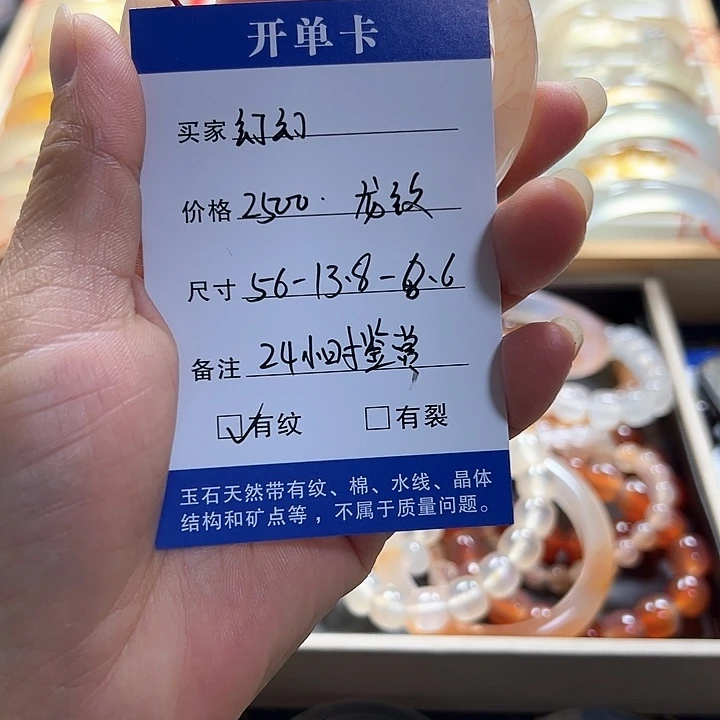 开单卡
买家 幻幻
价格 2500. 龙纹
尺寸 56-13.8-8.6
备注 24小时鉴赏
☑有纹 ☐有裂
玉石天然带有纹、棉、水线、晶体
结构和矿点等，不属于质量问题。